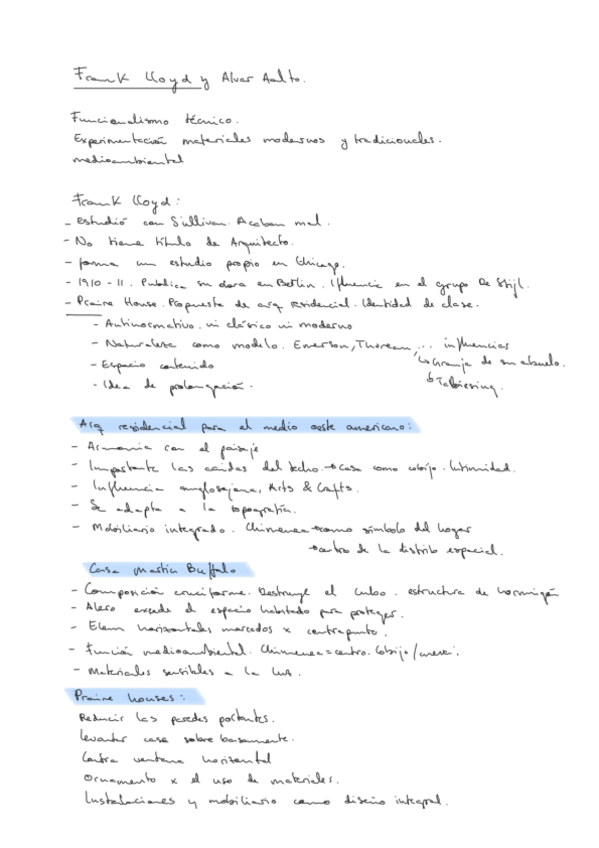 Frank Lloyd y Alvar Aalto.
Funcionalismo técnico.
Experimentación materiales modernos y tradicionales.
medioambiental
Frank Lloyd:
- Estudió con Sullivan. Acaban mal.
- No tiene título de Arquitecto.
- forma un estudio propio en Chicago.
- 1910 - 11. Publica su obra en Berlín. Influencia en el grupo De Stijl.
- Prairie House. Propuesta de arq residencial. Identidad de clase.
- Antinormativo. ni clásico ni moderno
- Naturaleza como modelo. Emerson, Thoreau, ... influencias
↳ Granja de su abuelo.
- Espacio contenido
↳ Taliesing.
- Idea de prolongación.
Arq residencial para el medio oeste americano:
- Armonía con el paisaje
- Importante las caídas del techo. → casa como cobijo. Intimidad.
- Influencia anglosajona, Arts & Crafts.
- Se adapta a la topografía.
- Mobiliario integrado. Chimenea → como símbolo del hogar
→ centro de la distrib espacial.
Casa Martin Buffalo
- Composición cruciforme. Destruye el cubo. estructura de hormigón
- Alero excede el espacio habitado para proteger.
- Elem horizontales marcados x contrapunto.
- Función medioambiental. Chimenea = centro. Cobijo /
- Materiales sensibles a la luz.
Prairie houses:
Reducir las paredes portantes.
Levantar casa sobre basamento.
Contra ventana horizontal
Ornamento x el uso de materiales.
Instalaciones y mobiliario como diseño integral.